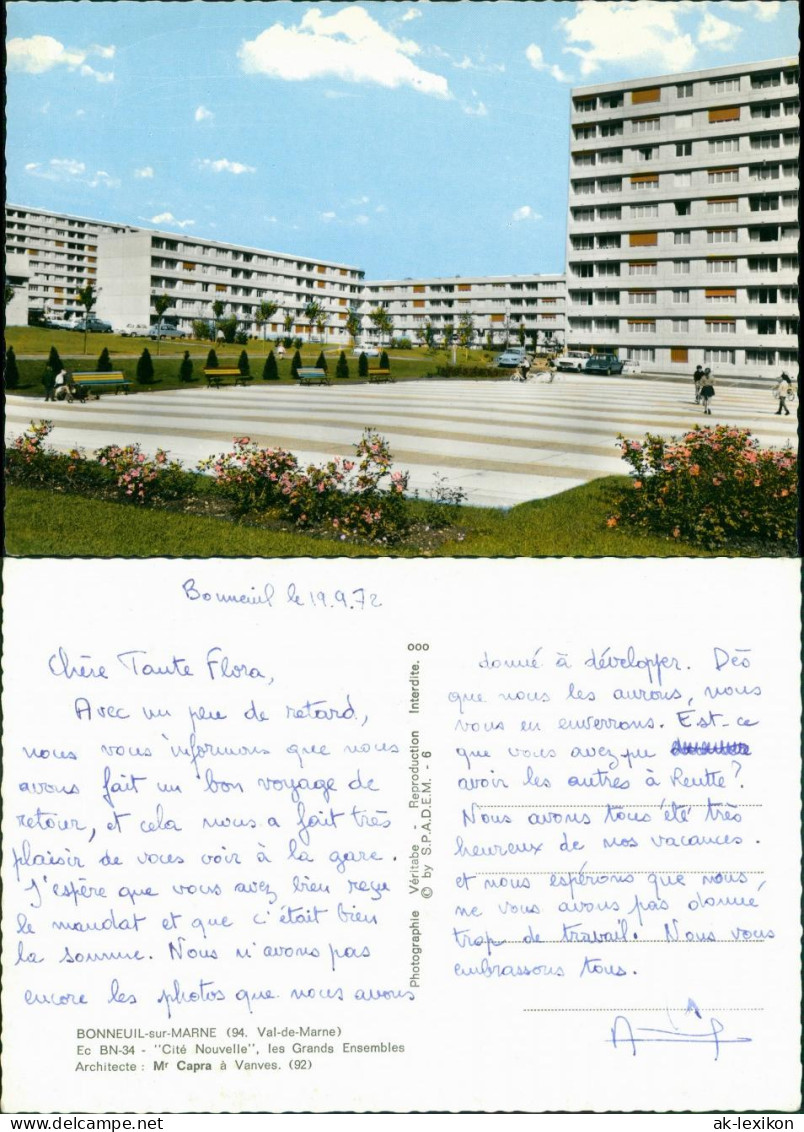 Bonneuil le 19.9.72
Chère Tante Flora,
Avec un peu de retard,
nous vous informons que nous
avons fait un bon voyage de
retour, et cela nous a fait très
plaisir de vous voir à la gare.
J'espère que vous avez bien reçu
le mandat et que c'était bien
la somme. Nous n'avons pas
encore les photos que nous avons
BONNEUIL-sur-MARNE (94. Val-de-Marne)
Ec BN-34 - "Cité Nouvelle", les Grands Ensembles
Architecte : Mr Capra à Vanves. (92)
Photographie Véritabe - Reproduction Interdite.
© by S.P.A.D.E.M. - 6
donné à développer. Dès
que nous les aurons, nous
vous en enverrons. Est-ce
que vous avez pu
avoir les autres à Reutte?
Nous avons tous été très
heureux de nos vacances.
et nous espérons que nous
ne vous avons pas donné
trop de travail. Nous vous
embrassons tous.
ak-ansichtskarten.de
ak-lexikon